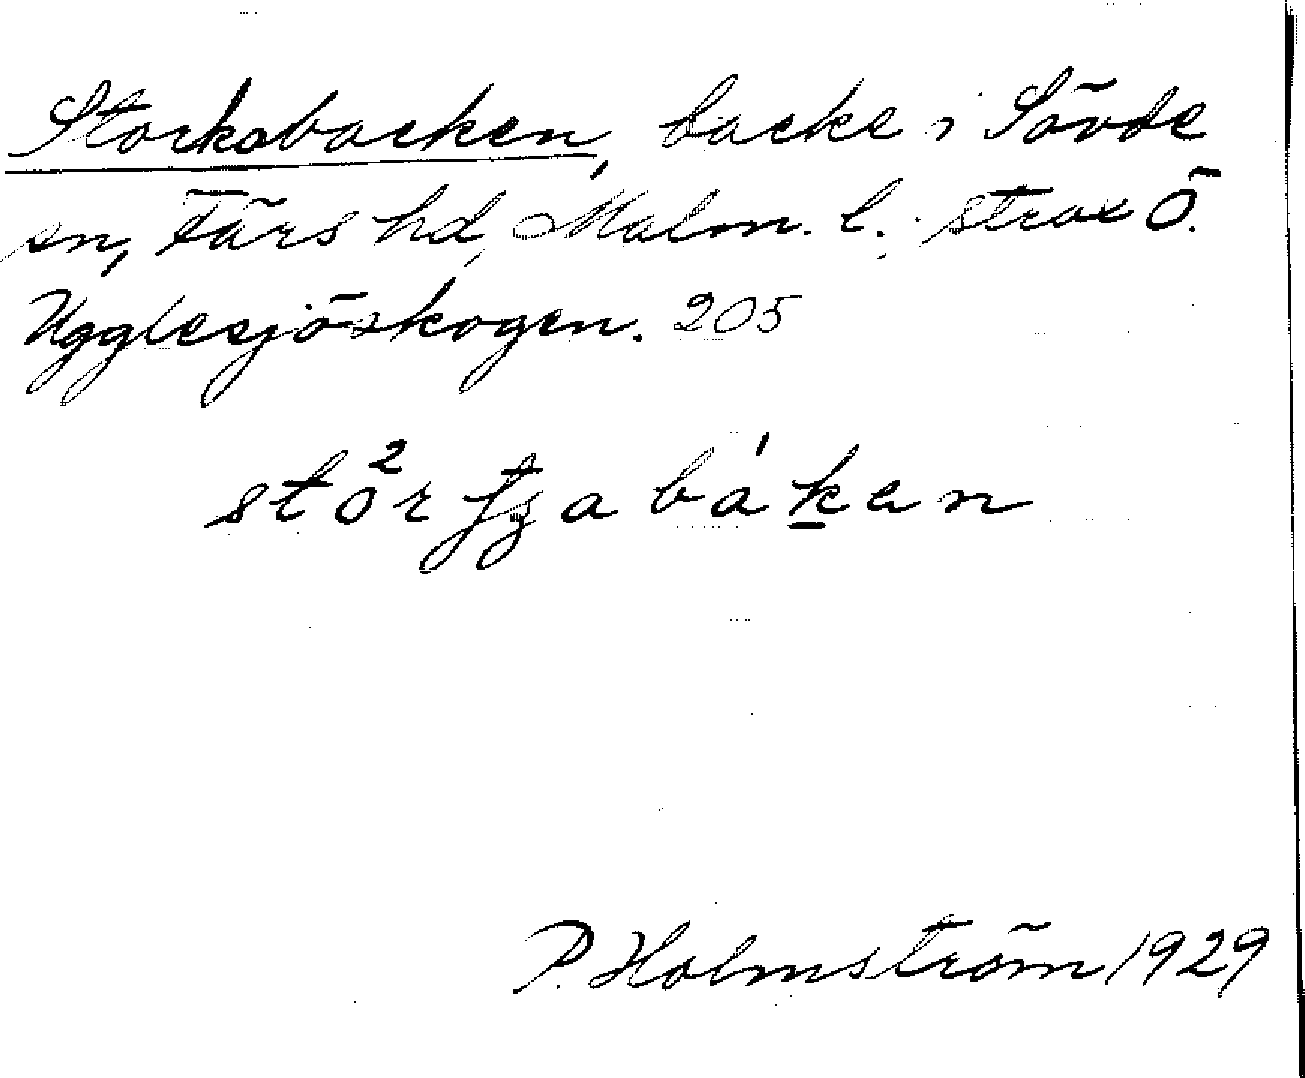 Storkabacken, backe i Sövde
sn, Färs hd, Malm. l. strax Ö.
Ugglesjöskogen. 205
P. Holmström 1929